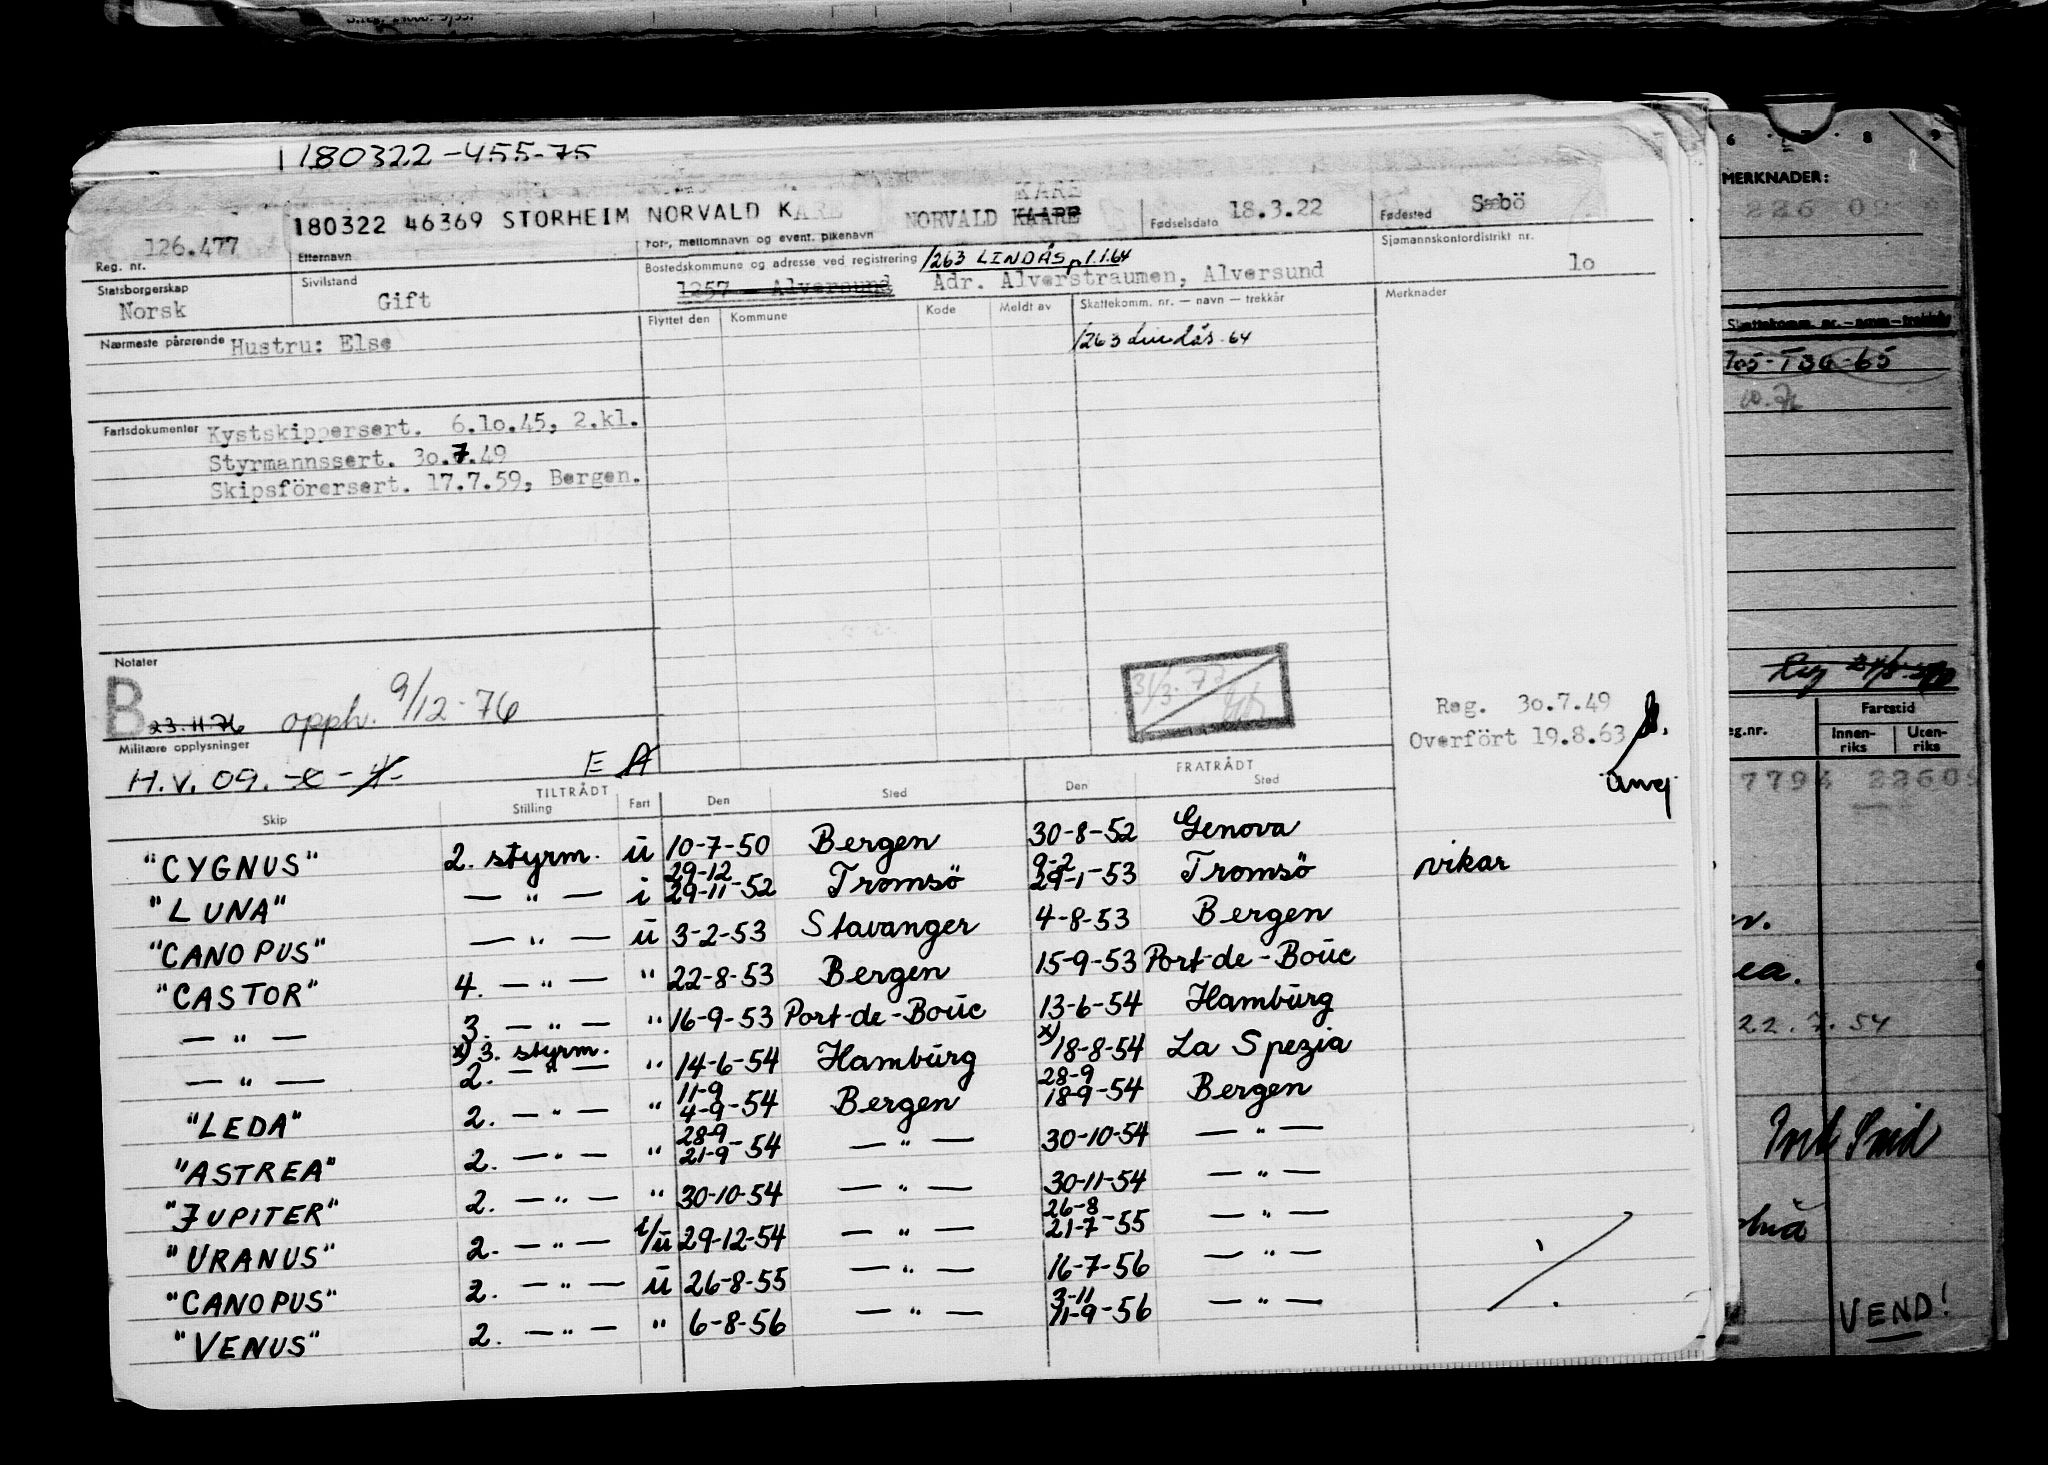 180322-455-75
180322 46369 STORHEIM NORVALD KARE
KARE
NORVALD KAARE
Fødselsdato 18.3.22
Fødested Sæbö
126.477
Reg. nr.
Etternavn
For-, mellomnavn og event. pikenavn
Statsborgerskap
Norsk
Sivilstand
Gift
Bostedskommune og adresse ved registrering
1263 LINDÅS p 1.1.64
1257 - Alversund
Adr. Alverstraumen, Alversund
Sjømannskontordistrikt nr.
10
Nærmeste pårørende Hustru: Else
Flyttet den Kommune Kode Meldt av Skattekomm. nr. — navn — trekkår
Merknader
1263 Lindås. 64
Fartsdokumenter Kystskippersert. 6.10.45, 2.kl.
Styrmannssert. 30.7.49
Skipsförersert. 17.7.59, Bergen.
Notater
B 23.11.76 opph. 9/12-76
31/3.77
Reg. 30.7.49
Overfört 19.8.63
Militære opplysninger
H.V. 09. E A
TILTRÅDT FRATRÅDT
Skip Stilling Fart Den Sted Den Sted
"CYGNUS" 2. styrm. u 10-7-50 Bergen 30-8-52 Genova
29-12 9-2
"LUNA" — " — i 29-11-52 Tromsö 29-1-53 Tromsö vikar
"CANOPUS" — " — u 3-2-53 Stavanger 4-8-53 Bergen
"CASTOR" 4. — " — " 22-8-53 Bergen 15-9-53 Port-de-Bouc
— " — 3. — " — " 16-9-53 Port-de-Bouc 13-6-54 Hamburg
x) 3. styrm.
— " — 2. — " — " 14-6-54 Hamburg x) 18-8-54 La Spezia
11-9 28-9
"LEDA" 2. — " — " 4-9-54 Bergen 18-9-54 Bergen
28-9
"ASTREA" 2. — " — " 21-9-54 — " — 30-10-54 — " —
"JUPITER" 2. — " — " 30-10-54 — " — 30-11-54 — " —
26-8
"URANUS" 2. — " — i/u 29-12-54 — " — 21-7-55 — " —
"CANOPUS" 2. — " — u 26-8-55 — " — 16-7-56 — " —
3-11
"VENUS" 2. — " — " 6-8-56 — " — 11-9-56 — " —
6 · 7 · 8 9
MERKNADER:
Skattekomm. nr. — navn — trekkår
Fartstid
Innen-
riks
Uten-
riks
22.7.54
VEND!